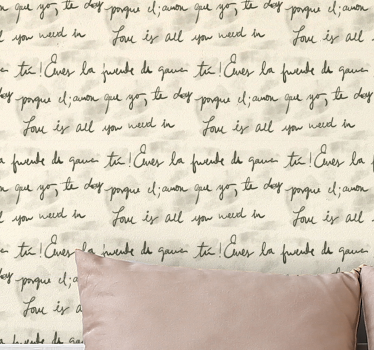 porque el; amor que yo, te doy porque el; amor que yo, te doy
Love is all you need in Love is all you need in
tú! Eres la fuente de tú! Eres la fuente de
doy porque el; amor que yo, te doy porque el; amor que yo, te
Love is all you need in Love is all you need in
la fuente de tú! Eres la fuente de tú! Eres la
que yo, te doy porque el; amor que yo, te doy porque el; amor
you need in Love is all you need in Love is all
tú! Eres la fuente de tú! Eres la fuente de
doy porque el; que yo, te
Love is all
la fuente de